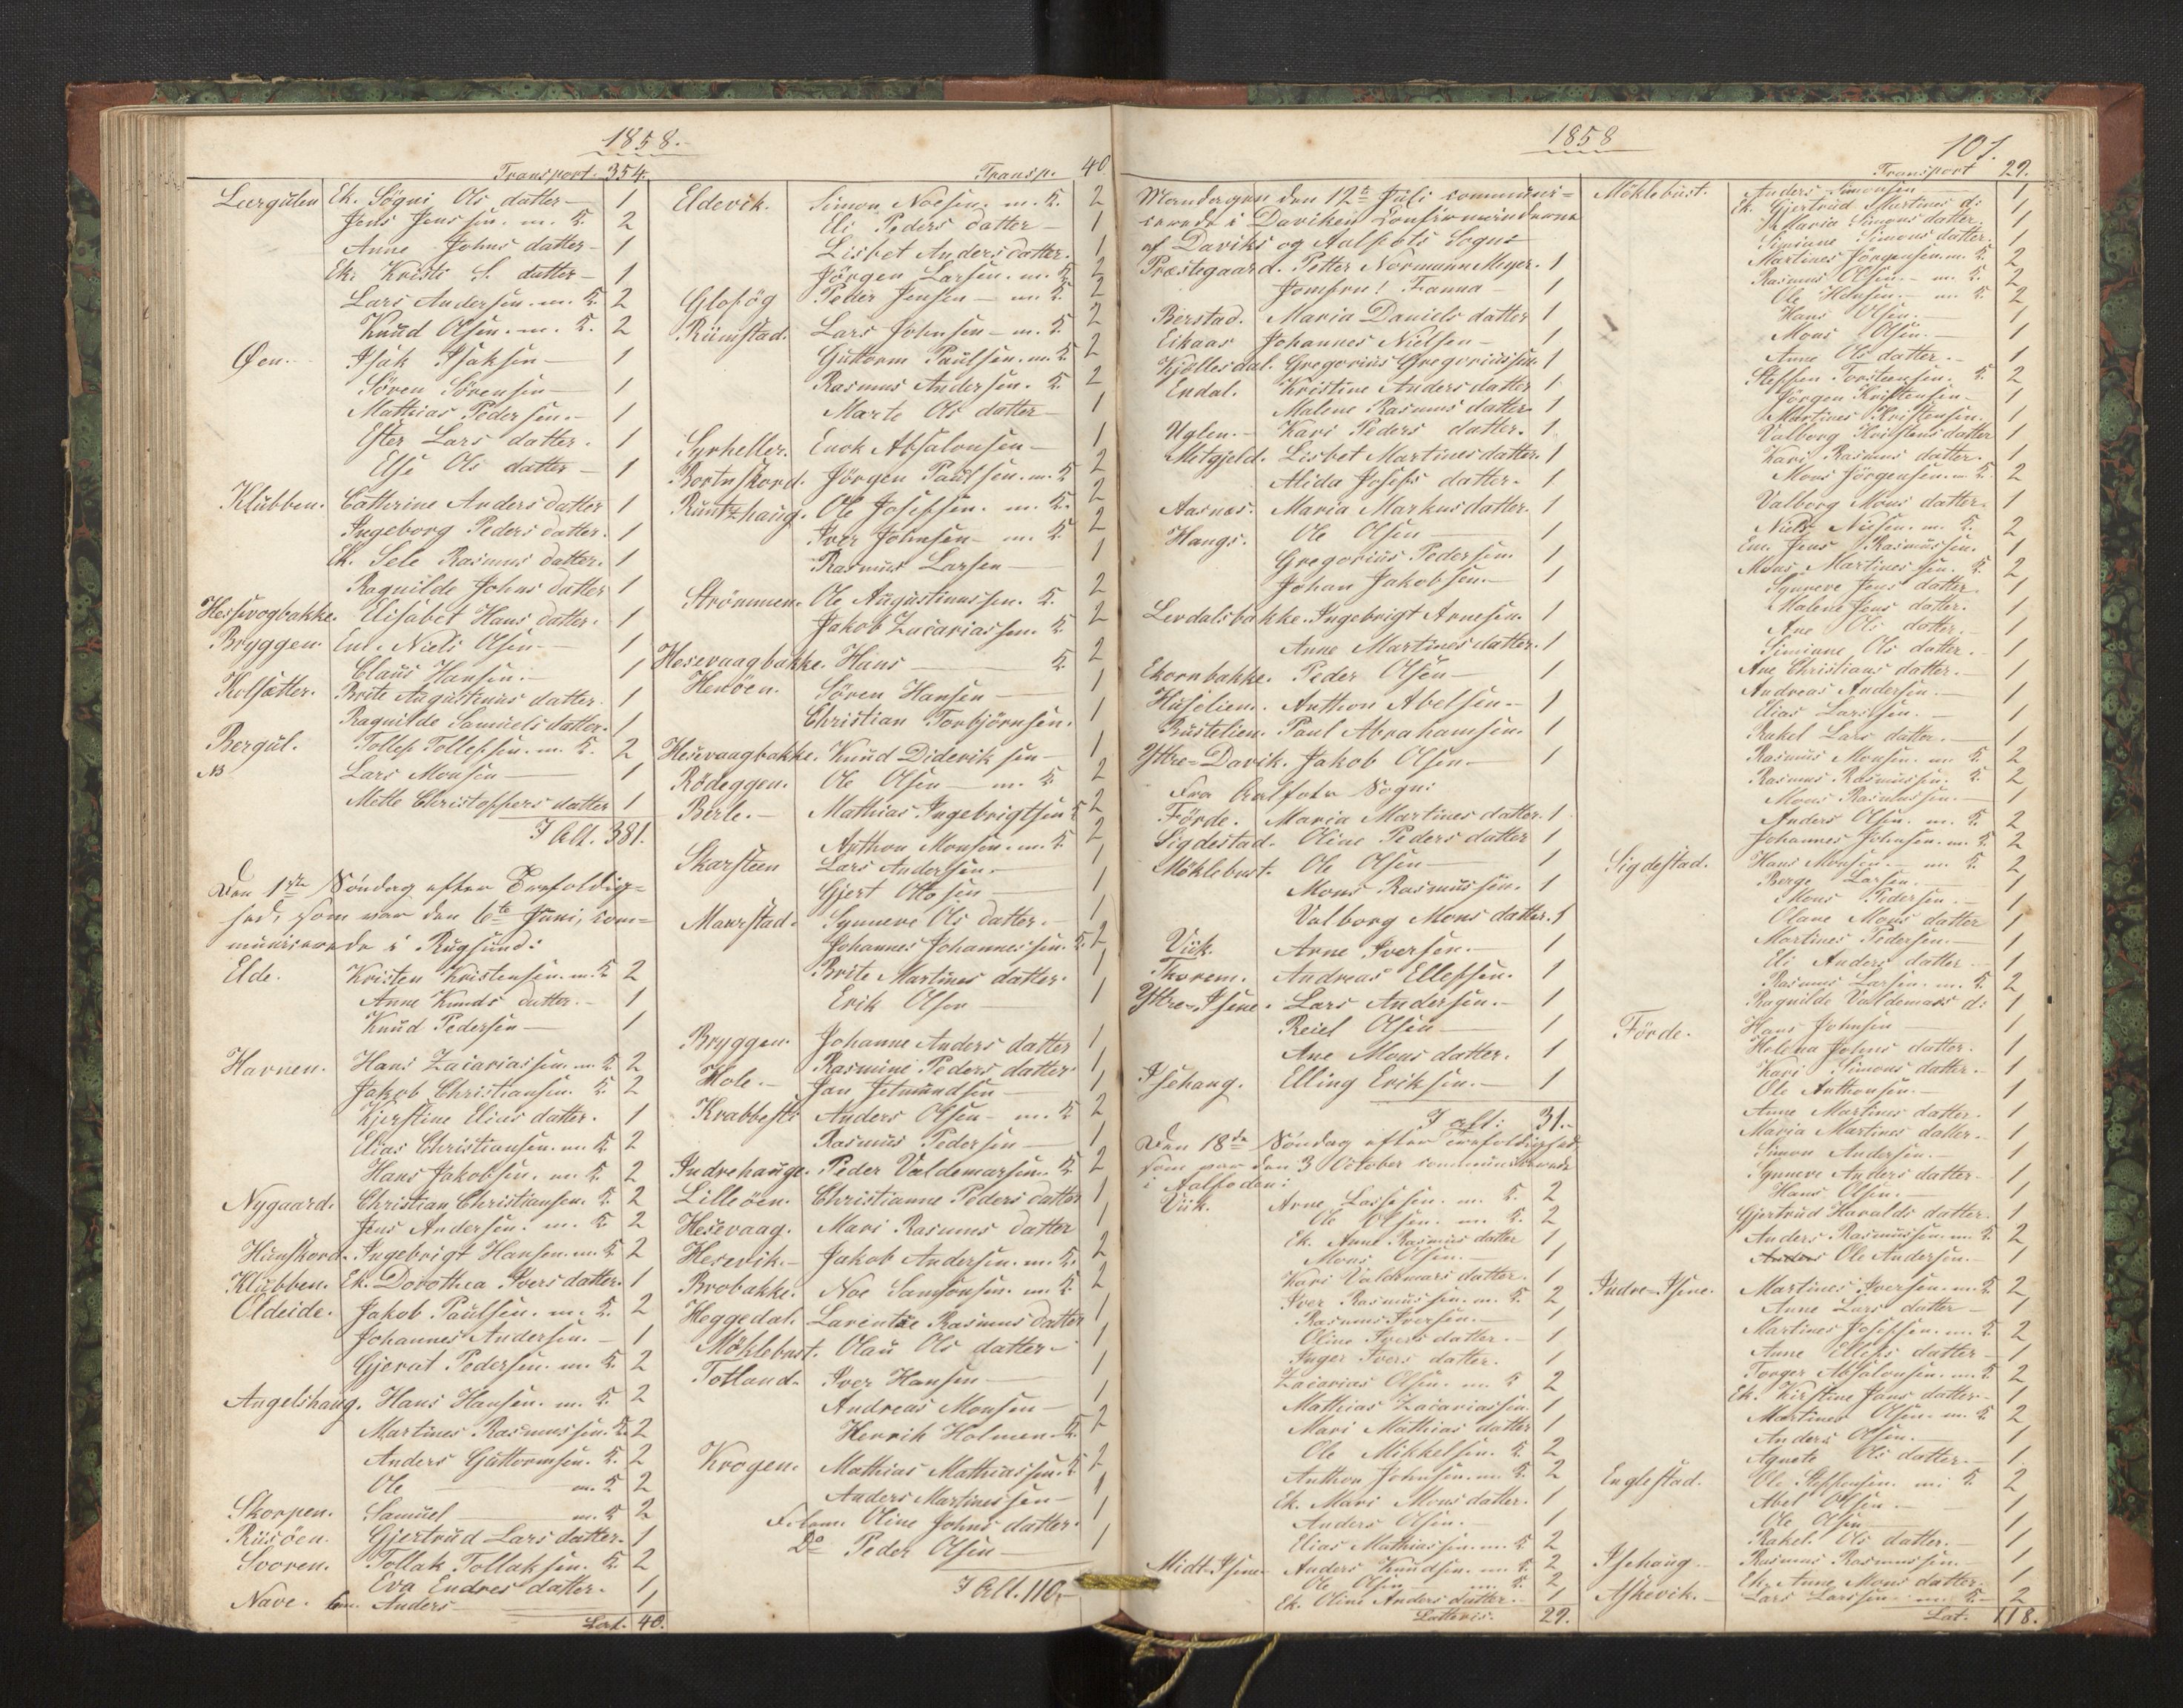 1858.
Transport. 354.
Leergulen Ek. Sögni Ols datter — 1
Jens Jenssen. m. K. 2
Anne Johns datter — 1
Ek. Kristi S. datter — 1
Lars Andersen. m. K. 2
Knud Olsen. m. K. 2
Öen. Isak Isaksen — 1
Sören Sörensen — 1
Mathias Pedersen. — 1
Ester Lars datter. 1
Else Ols datter — 1
Klubben. Cathrine Anders datter 1
Ingeborg Peders datter. 1
Ek. Sele Rasmus datter. 1
Ragnilde Johns datter 1
Hessevogbakke. Elisabet Hans datter. 1
Bryggen. Em. Niels Olsen — 1
Claus Hansen. — 1
Kolsætter. Brite Augustinus datter. 1
Ragnilde Samuels datter. 1
Bergul. Tollef Tollefsen. m. K. 2
NB Lars Monsen — 1
Mette Christoffers datter 1
I Alt. 381.
Den 1ste Söndag efter Trefoldig=
hed, som var den 6te Juni, com=
municerede i Rugsund:
Elde. Kristen Kristensen. m. K 2
Anne Knuds datter. — 1
Knud Pedersen — 1
Havnen. Hans Zacariassen. m. K 2
Jakob Christiansen. K. 2
Kjerstine Elias datter. 1
Elias Christiansen. m. K 2
Hans Jakobsen. m. K. 2
Nygaard. Christian Christiansen. K. 2
Jens Andersen. m. K. 2
Hunskord. Ingebrigt Hansen. m. K 2
Klubben. Ek. Dorothea Ivers datter. 1
Oldeide. Jakob Paulsen. m. K. 2
Johannes Andersen. — 1
Gjerat Pedersen. m. K. 2
Angelshaug. Hans Hansen. m. K. 2
Martines Rasmussen. K. 2
Anders Guttormsen. K. 2
Ole — m. K 2
Skorpen. Samuel — m. K 2
Risöen. Gjertrud Lars datter. 1
Svoren. Tollak Tollaksen. K. 2
Eva Endres datter. 1
Nave. Em. Anders — 1
Lat. 40.
Transp. 40
Eldevik. Simon Noesen. m. K. 2
Eli Peders datter — 1
Lisbet Anders datter. 1
Jörgen Larsen. m. K. 2
Peder Jensen — m. K. 2
Rimstad. Lars Johnsen — m. K. 2
Guttorm Paulsen. m. K. 2
Rasmus Andersen. K. 2
Marte Ols datter — 1
Syrheller. Enok Absalonsen — 1
Bortnskord. Jörgen Paulsen. m. K 2
Runtzhaug. Ole Josefsen. m. K. 2
Iver Johnsen — m. K. 2
Rasmus Larsen — 1
Strömmen. Ole Augustinussen. K. 2
Jakob Zacariassen. K 2
Hesevaagbakke. Hans — K. 2
Henöen. Sören Hansen — 1
Christian Torbjörnsen. 1
Hesevaagbakke. Knud Dideriksen — 1
Rödeggen. Ole Olsen — m. K 2
Berle. — Mathias Ingebrigtsen K 2
Anthon Monsen. m. K 2
Skarsteen Lars Andersen. 1
Gjert Ottosen — 1
Maurstad. Synneve Ols datter. — 1
Johannes Johannessen. K. 2
Brite Martines datter. 1
Erik Olsen — 1
Bryggen. Johanne Anders datter 1
Rasmine Peders datter 1
Hole. — Jan Jetmundsen — 1
Krabbest: Anders Olsen — m. K 2
Rasmus Pedersen — 1
Indrehauge. Peder Valdemarsen. K 2
Lilleöen. Christianne Peders datter 1
Hesevaag. Mari Rasmus datter 1
Hesevik. — Jakob Andersen. m. K. 2
Brobakke. Noe Samsonsen. m. K 2
Heggedal. Larentze Rasmus datter 1
Möklebust. Olau Ols datter — 1
Totland. Iver Hansen — 1
Andreas Monsen — 1
Henrik Holmen. K. 2
Krogen. Mathias Mathiassen. K 2
Anders Martinessen — 1
Oline Johns datter. 1
Do Peder Olsen — 1
I Alt. 110. —
1858
101.
Transport 29.
Mandagen den 12te Juli communi=
cerede i Daviken Confirmanderne
af Daviks og Aalfots Sogne
Præstegaard. Petter Normann Meyer. 1
Jomfru! Fanna — 1
Berstad. Maria Daniels datter 1
Eikaas Johannes Nielsen — 1
Kjöllesdal. Gregorius Gregoriussen 1
Endal. Kristine Anders datter 1
Malene Rasmus datter. 1
Uglen. — Kari Peders datter. 1
Metgjeld. Lisbet Martines datter. 1
Alida Josefs datter. 1
Aasnæs. Maria Markus datter. 1
Haugs. Ole Olsen — 1
Gregorius Pedersen 1
Johan Jakobsen. — 1
Levdalsbakke. Ingebrigt Arnesen. 1
Anne Martines datter. 1
Ekornbakke. Peder Olsen — 1
Huselien. Anthon Abelsen. — 1
Rustelien. Paul Abrahamsen. 1
Yttre=Davik. Jakob Olsen — 1
Fra Aalfots Sogn:
Förde. Maria Martines datter. 1
Sigdestad. Oline Peders datter 1
Möklebust. Ole Olsen — 1
Mons Rasmussen. 1
Valborg Mons datter. 1
Viik. Arne Iversen. — 1
Thorem. Andreas Ellefsen. 1
Yttre=Isene. Lars Andersen. — 1
Reiel Olsen — 1
Ane Mons datter. 1
Isehaug. Elling Eriksen. — 1
I alt: 31. —
Den 18de Söndag efter Trefoldighed
som var den 3 October communicerede
i Aalfoden:
Viik. Arne Lassesen. m. K. 2
Ole Olsen. m. K. 2
Ek. Anne Rasmus datter 1
Mons Olsen. — 1
Kari Valdemars datter. 1
Iver Rasmussen. m. K. 2
Rasmus Iversen. — 1
Oline Ivers datter. — 1
Inger Ivers datter. 1
Zacarias Olsen. m. K 2
Mathias Zacariassen. 1
Mari Mathias datter 1
Ole Mikkelsen. K 2
Anthon Johnsen. m. K. 2
Ek. Mari Mons datter. 1
Anders Olsen. — 1
Elias Mathiassen. m. K 2
Midt-Isene. Anders Knudsen. m. K 2
Ole Olsen — m. K. 2
Ek. Oline Anders datter. — 1
Latteris. 29.
Möklebust. Anders Simonsen — 1
Ek. Gjertrud Martines d: 1
Maria Simons datter. 1
Simiane Simons datter. 1
Martines Jörgensen. m. K 2
Rasmus Olsen — m. K 2
Ole Hansen — m. K 2
Hans Olsen. — 1
Mons Olsen. — 1
Anne Ols datter. — 1
Steffen Torstensen. K. 2
Jörgen Kristensen — 1
Martines Kristensen. 1
Valborg Kristens datter 1
Kari Rasmus datter. 1
Mons Jörgensen. m. K 2
Valborg Mons datter. 1
Niels Nielsen. m. K. 2
Em. Jens Rasmussen. 1
Mons Martinessen. K. 2
Synneve Jens datter. 1
Malene Jens datter. 1
Ane Ols datter. — 1
Simiane Ols datter. — 1
Ane Christians datter. — 1
Andreas Andersen. — 1
Elias Larssen. — 1
Rakel Lars datter. — 1
Rasmus Monsen. m K 2
Rasmus Rasmussen. K 2
Mons Rasmussen. — 1
Anders Olsen. m. K. 2
Johannes Johnsen. m. K 2
Sigdestad. Hans Monsen. — m. K 2
Berge Larsen. — 1
Mons Pedersen. — 1
Olave Mons datter 1
Martines Pedersen. — 1
Eli Anders datter — 1
Rasmus Larsen. m. K 2
Ragnilde Valdemars d: 1
Förde. Hans Johnsen — 1
Helena Johns datter. 1
Kari Simons datter. — 1
Ole Anthonsen. — 1
Anne Martines datter. 1
Maria Martines datter. 1
Simon Andersen. — 1
Synneve Anders datter. 1
Hans Olsen. — 1
Gjertrud Haralds datter. 1
Anders Rasmussen. m. K 2
Ole Andersen. — 1
Indre-Isene. Martines Iversen. m. K 2
Anne Lars datter — 1
Martines Josefsen. m. K 2
Anne Ellefs datter — 1
Torger Absalonsen. m. K 2
Ek. Kirstine Jans datter — 1
Martines Olsen. m. K 2
Anders Olsen. — 1
Agnete Ols datter. — 1
Englestad. Ole Steffensen. m. K 2
Abel Olsen. — 1
Ole Olsen — 1
Rakel Ols datter. — 1
Isehaug. — Rasmus Rasmussen. 1
Ek. Anne Mons datter. 1
Askevik. — Lars Larssen — m. K — 2
Lat. 118.